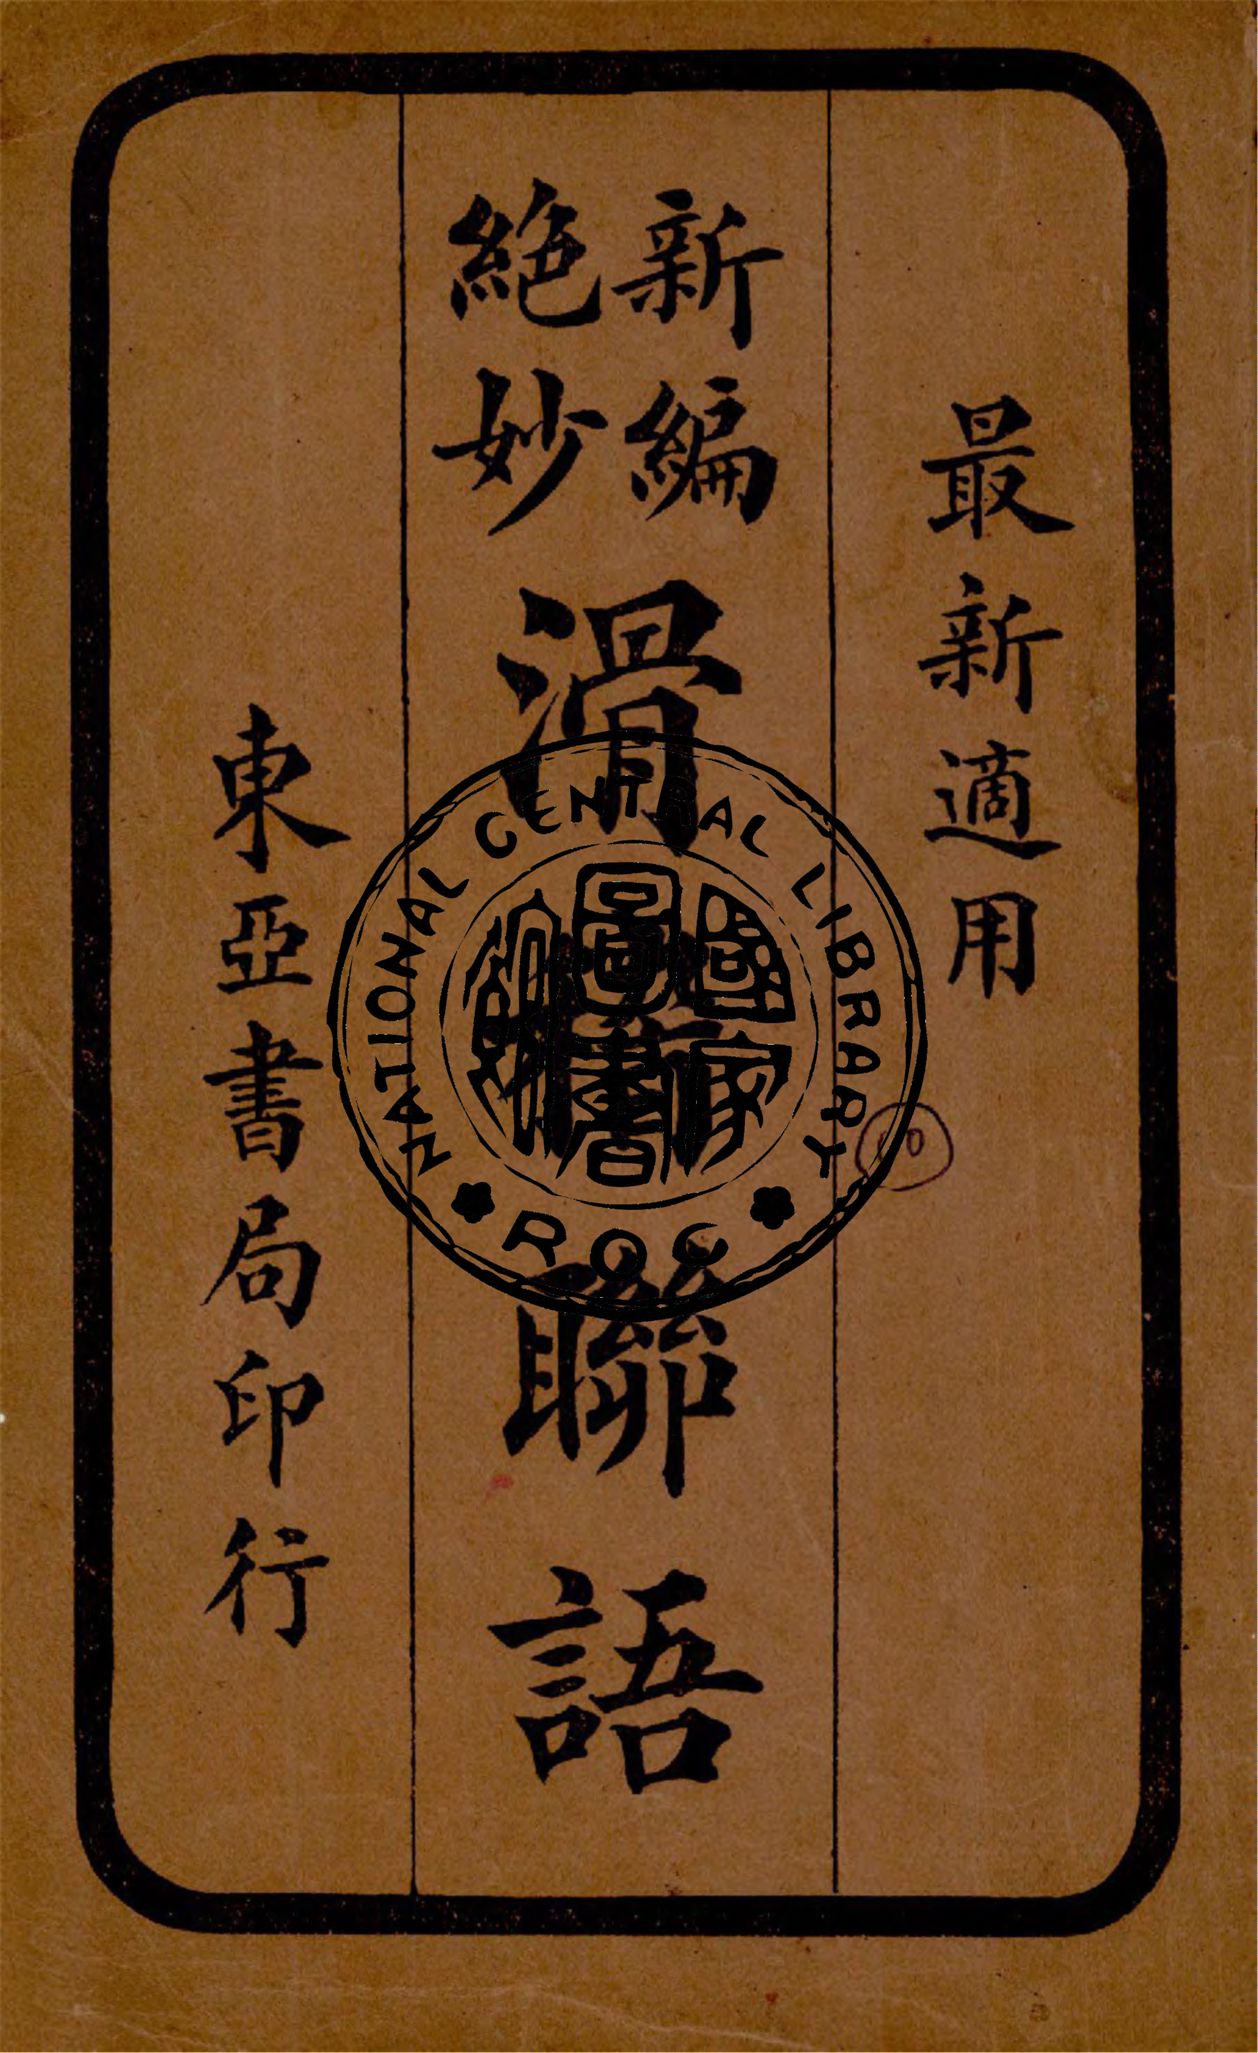 最新適用
新編
絕妙
滑
聯語
東亞書局印行
NATIONAL CENTRAL LIBRARY
ROC
國家
圖書
館